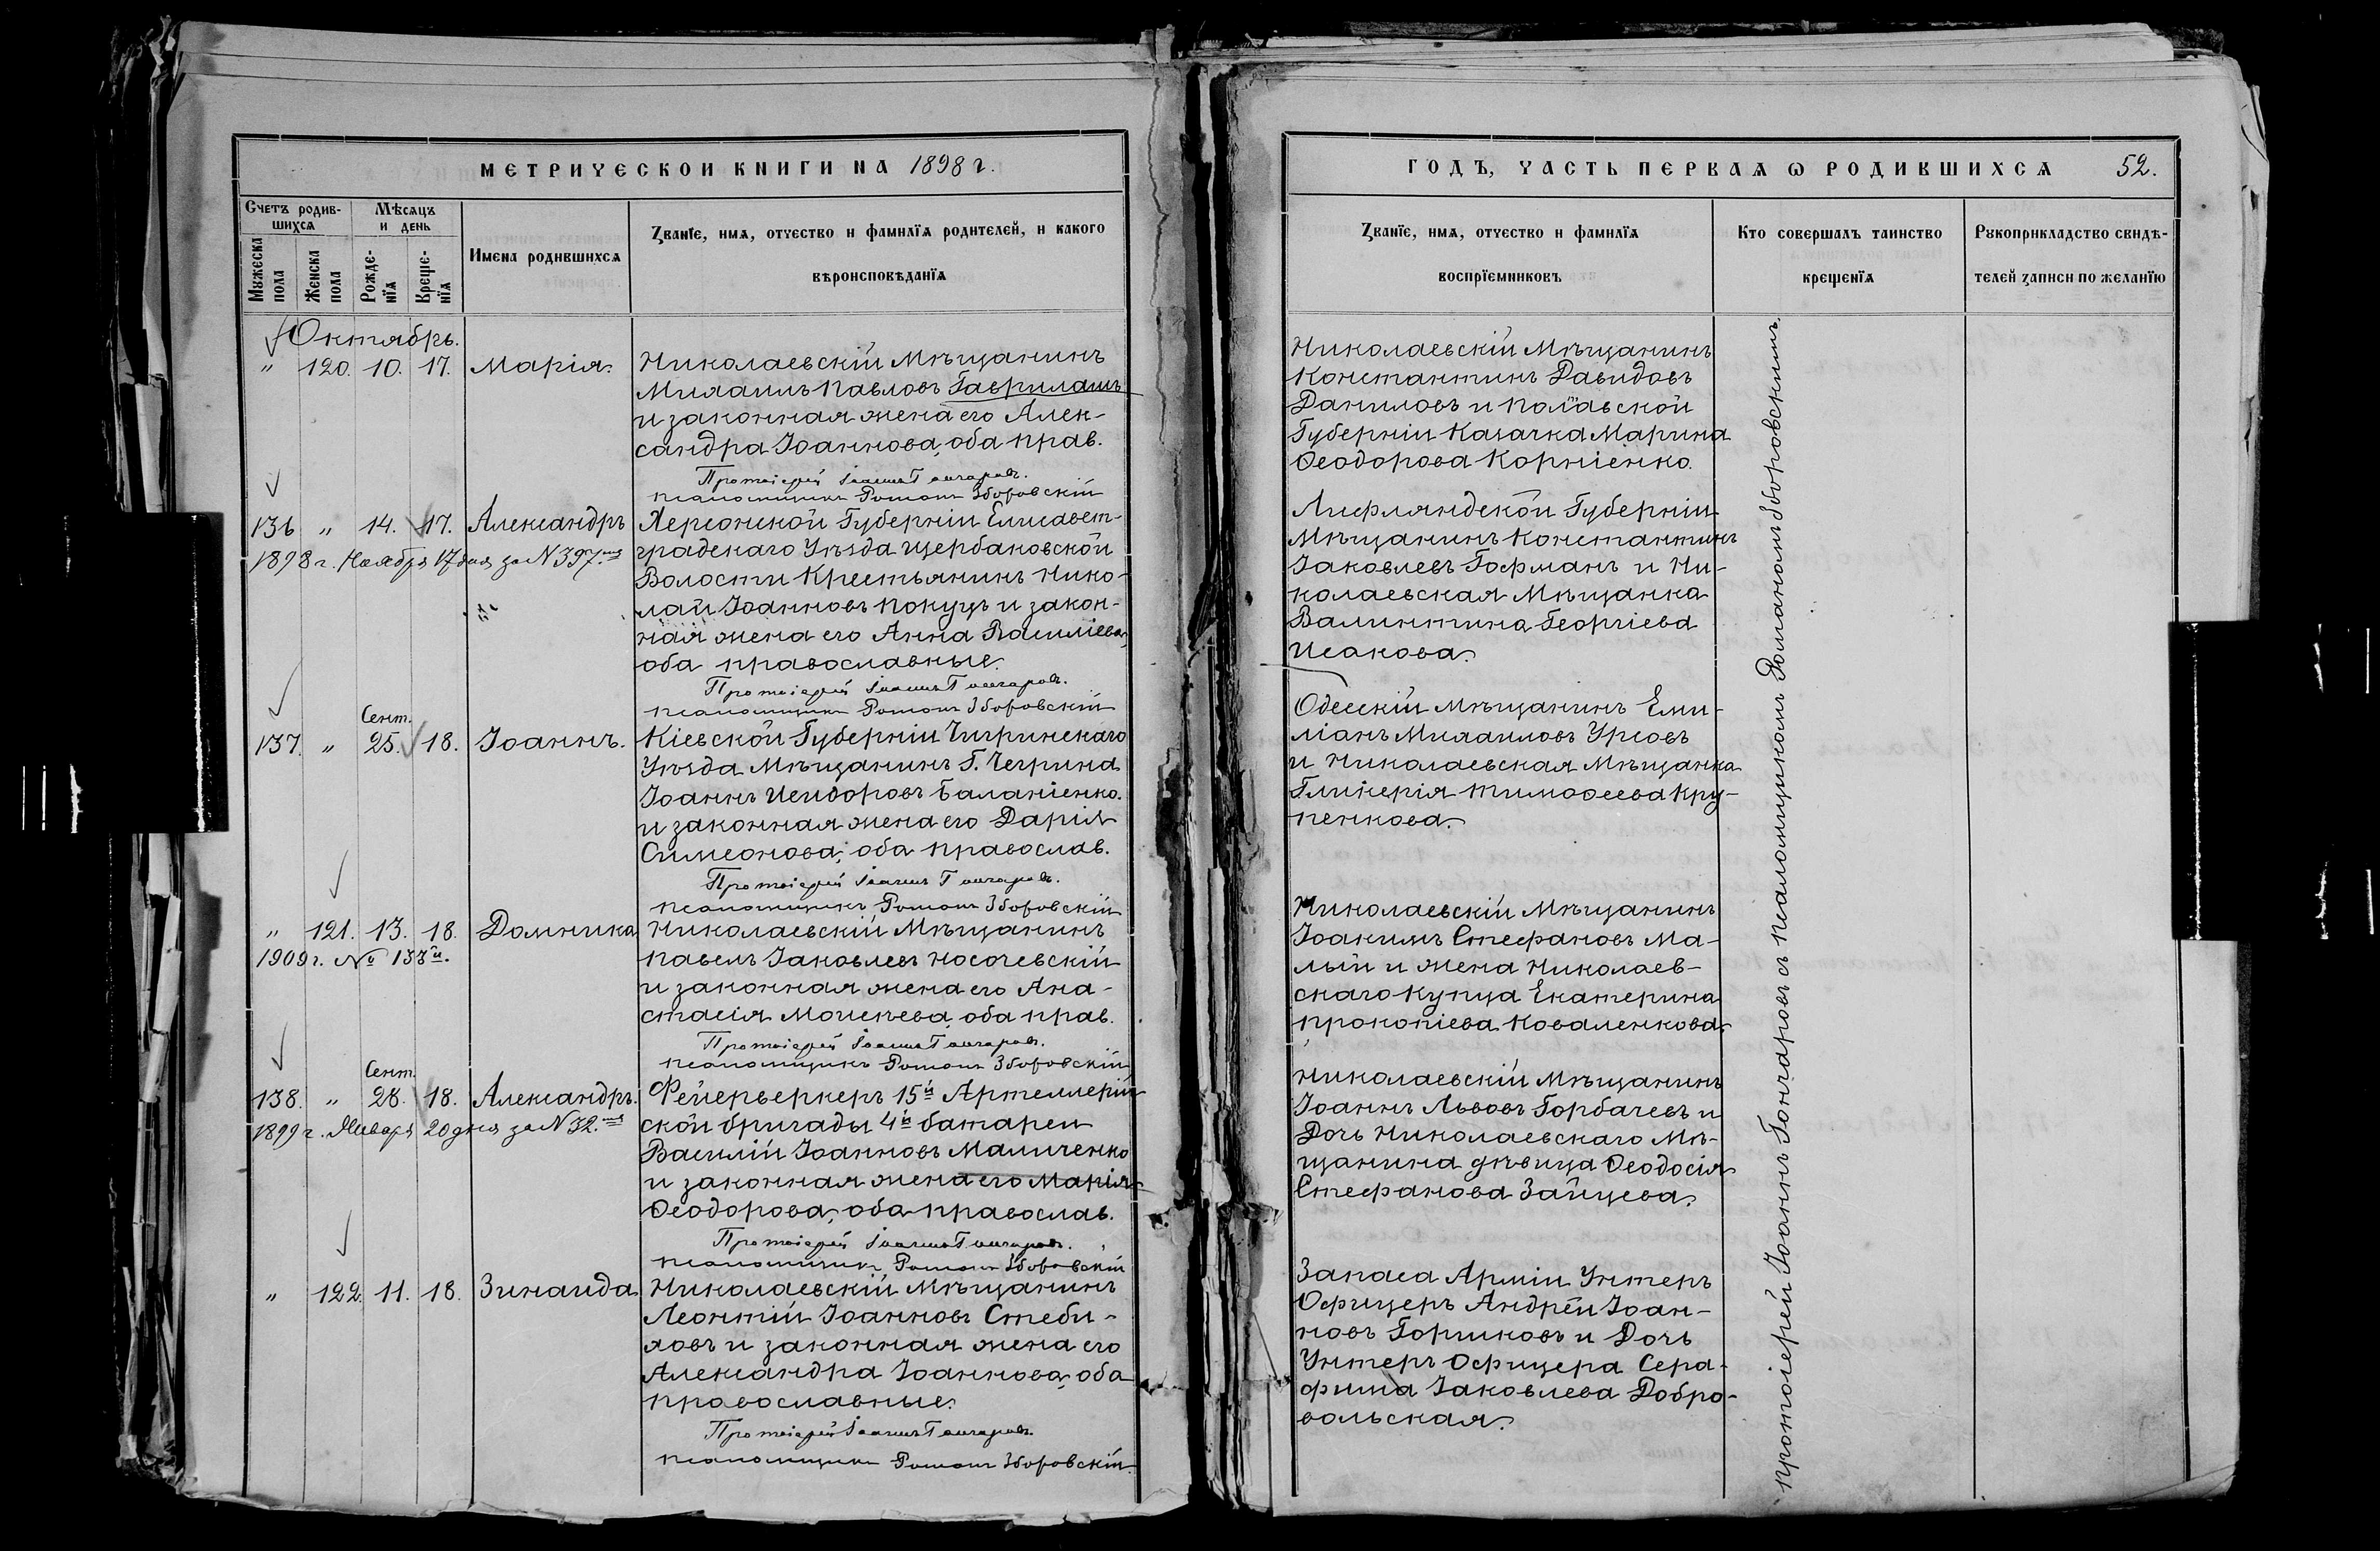 МЕТРИЧЕСКОЙ КНИГИ НА 1898 г.
Счетъ родив-
шихся
Мѣсяцъ
и день
Мужеска
пола
Женска
пола
Рожде-
нїя
Креще-
нїя
Имена родившихся
Званїе, имя, отчество и фамилїя родителей, и какого
вѣроисповѣданїя
Октябрь.
" 120. 10. 17. Марія.
Николаевскій Мѣщанинъ
Михаилъ Павловъ Гаврилашъ
и законная жена его Алек-
сандра Іоаннова, оба прав.
Протоіерей Іоаннъ Гончаровъ.
псаломщикъ Романъ Зборовскій
136 " 14. 17. Александръ
1898 г. Ноября 17 дня за N 397.
Херсонской Губерніи Елисавет-
градскаго Уѣзда Щербаковской
Волости Крестьянинъ Нико-
лай Іоанновъ Покуцъ и закон-
ная жена его Анна Василіева,
оба православные.
Протоіерей Іоаннъ Гончаровъ.
псаломщикъ Романъ Зборовскій
Сент.
137. " 25. 18. Іоаннъ.
Кіевской Губерніи Чигринскаго
Уѣзда Мѣщанинъ Г. Чегрина
Іоаннъ Исидоровъ Баланіенко.
и законная жена его Дарія
Симеонова, оба православ.
Протоіерей Іоаннъ Гончаровъ.
псаломщикъ Романъ Зборовскій
" 121. 13. 18. Домника
1909 г. № 138й.
Николаевскій Мѣщанинъ
Павелъ Іаковлевъ Носочевскій
и законная жена его Ана-
стасія Моисеева, оба прав.
Протоіерей Іоаннъ Гончаровъ.
псаломщикъ Романъ Зборовскій
Сент.
138. " 28. 18. Александръ.
1899 г. Января 20 дня за N 32.
Фейерверкеръ 15й Артеллерій-
ской бригады 4й батареи
Василій Іоанновъ Маличенко
и законная жена его Марія
Ѳеодорова, оба православ.
Протоіерей Іоаннъ Гончаровъ.
псаломщикъ Романъ Зборовскій
" 122. 11. 18. Зинаида
Николаевскій Мѣщанинъ
Леонтій Іоанновъ Стеби-
ховъ и законная жена его
Александра Іоаннова, оба
православные.
Протоіерей Іоаннъ Гончаровъ.
псаломщикъ Романъ Зборовскій.
ГОДЪ, ЧАСТЬ ПЕРВАЯ Ѡ РОДИВШИХСЯ 52.
Званїе, имя, отчество и фамилїя
воспрїемниковъ
Кто совершалъ таинство
крещенїя
Рукоприкладство свидѣ-
телей записи по желанїю
Николаевскій Мѣщанинъ
Константинъ Давидовъ
Даниловъ и Полтавской
Губерніи Казачка Марина
Ѳеодорова Корніенко.
Лифляндской Губерніи
Мѣщанинъ Константинъ
Іаковлевъ Гофманъ и Ни-
колаевская Мѣщанка
Валинтина Георгіева
Исакова.
Одесскій Мѣщанинъ Еми-
ліанъ Михаиловъ Урсовъ
и Николаевская Мѣщанка
Гликерія Тимоѳеева Кру-
пенкова.
Николаевскій Мѣщанинъ
Іоакимъ Стефановъ Ма-
лый и жена Николаев-
скаго Купца Екатерина
Прокопіева Коваленкова.
Николаевскій Мѣщанинъ
Іоаннъ Львовъ Горбачевъ и
Дочь Николаевскаго Мѣ-
щанина дѣвица Ѳеодосія
Стефанова Зайцева.
Запаса Арміи Унтеръ
Офицеръ Андрей Іоан-
новъ Горшковъ и Дочь
Унтеръ Офицера Сера-
фима Іаковлева Добро-
вольская.
Протоіерей Іоаннъ Гончаровъ съ псаломщикомъ Романомъ Зборовскимъ.